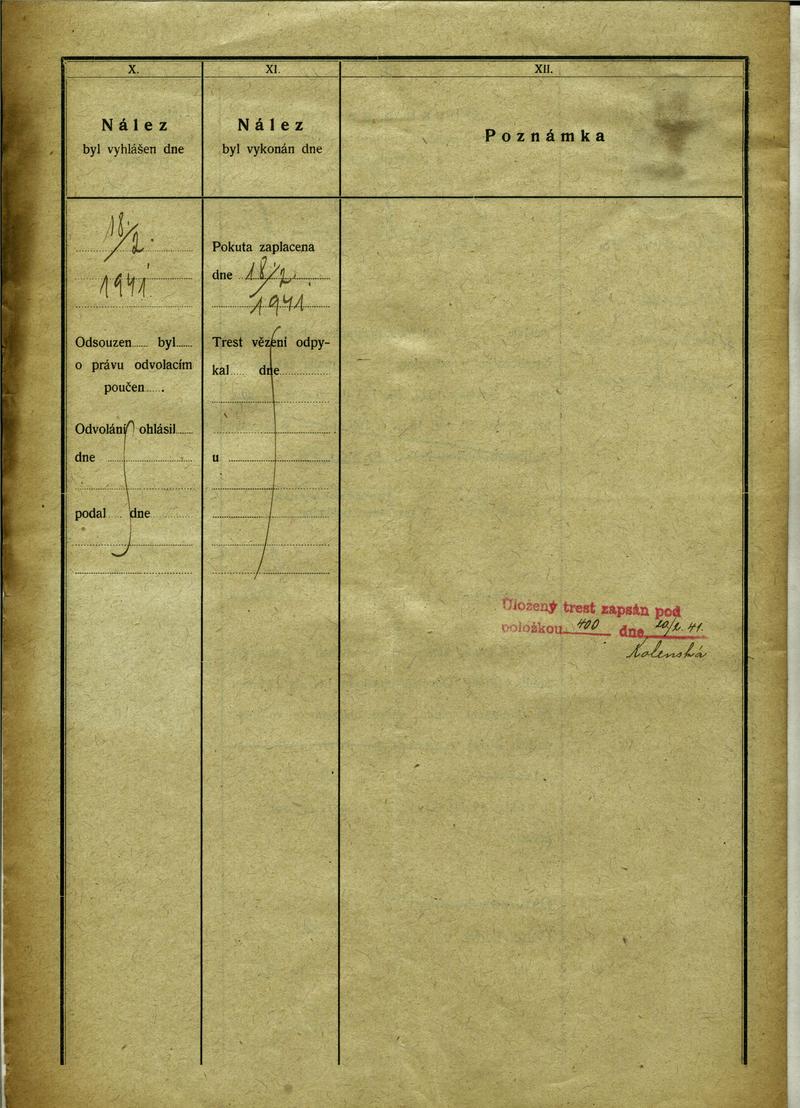 X.
Nález
byl vyhlášen dne
18./2.
1941.
Odsouzen...... byl......
o právu odvolacím
poučen...... .
Odvolání ohlásil......
dne
podal.... dne
XI.
Nález
byl vykonán dne
Pokuta zaplacena
dne 18./2.
1941.
Trest vězení odpy-
kal.... dne
u
XII.
Poznámka
Uložený trest zapsán pod
položkou 400 dne 20/2. 41.